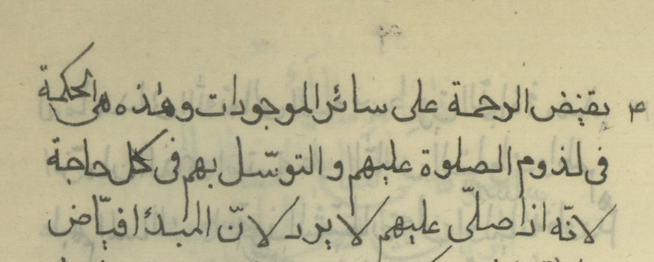 يفيض الرحمة على سائر الموجودات وهذه هي الحكمة
فى لزوم الصلوة عليهم والتوسّل بهم فى كل حاجة
لانّه اذا صلّى عليهم لا يرد لانّ المبدأ فيّاض